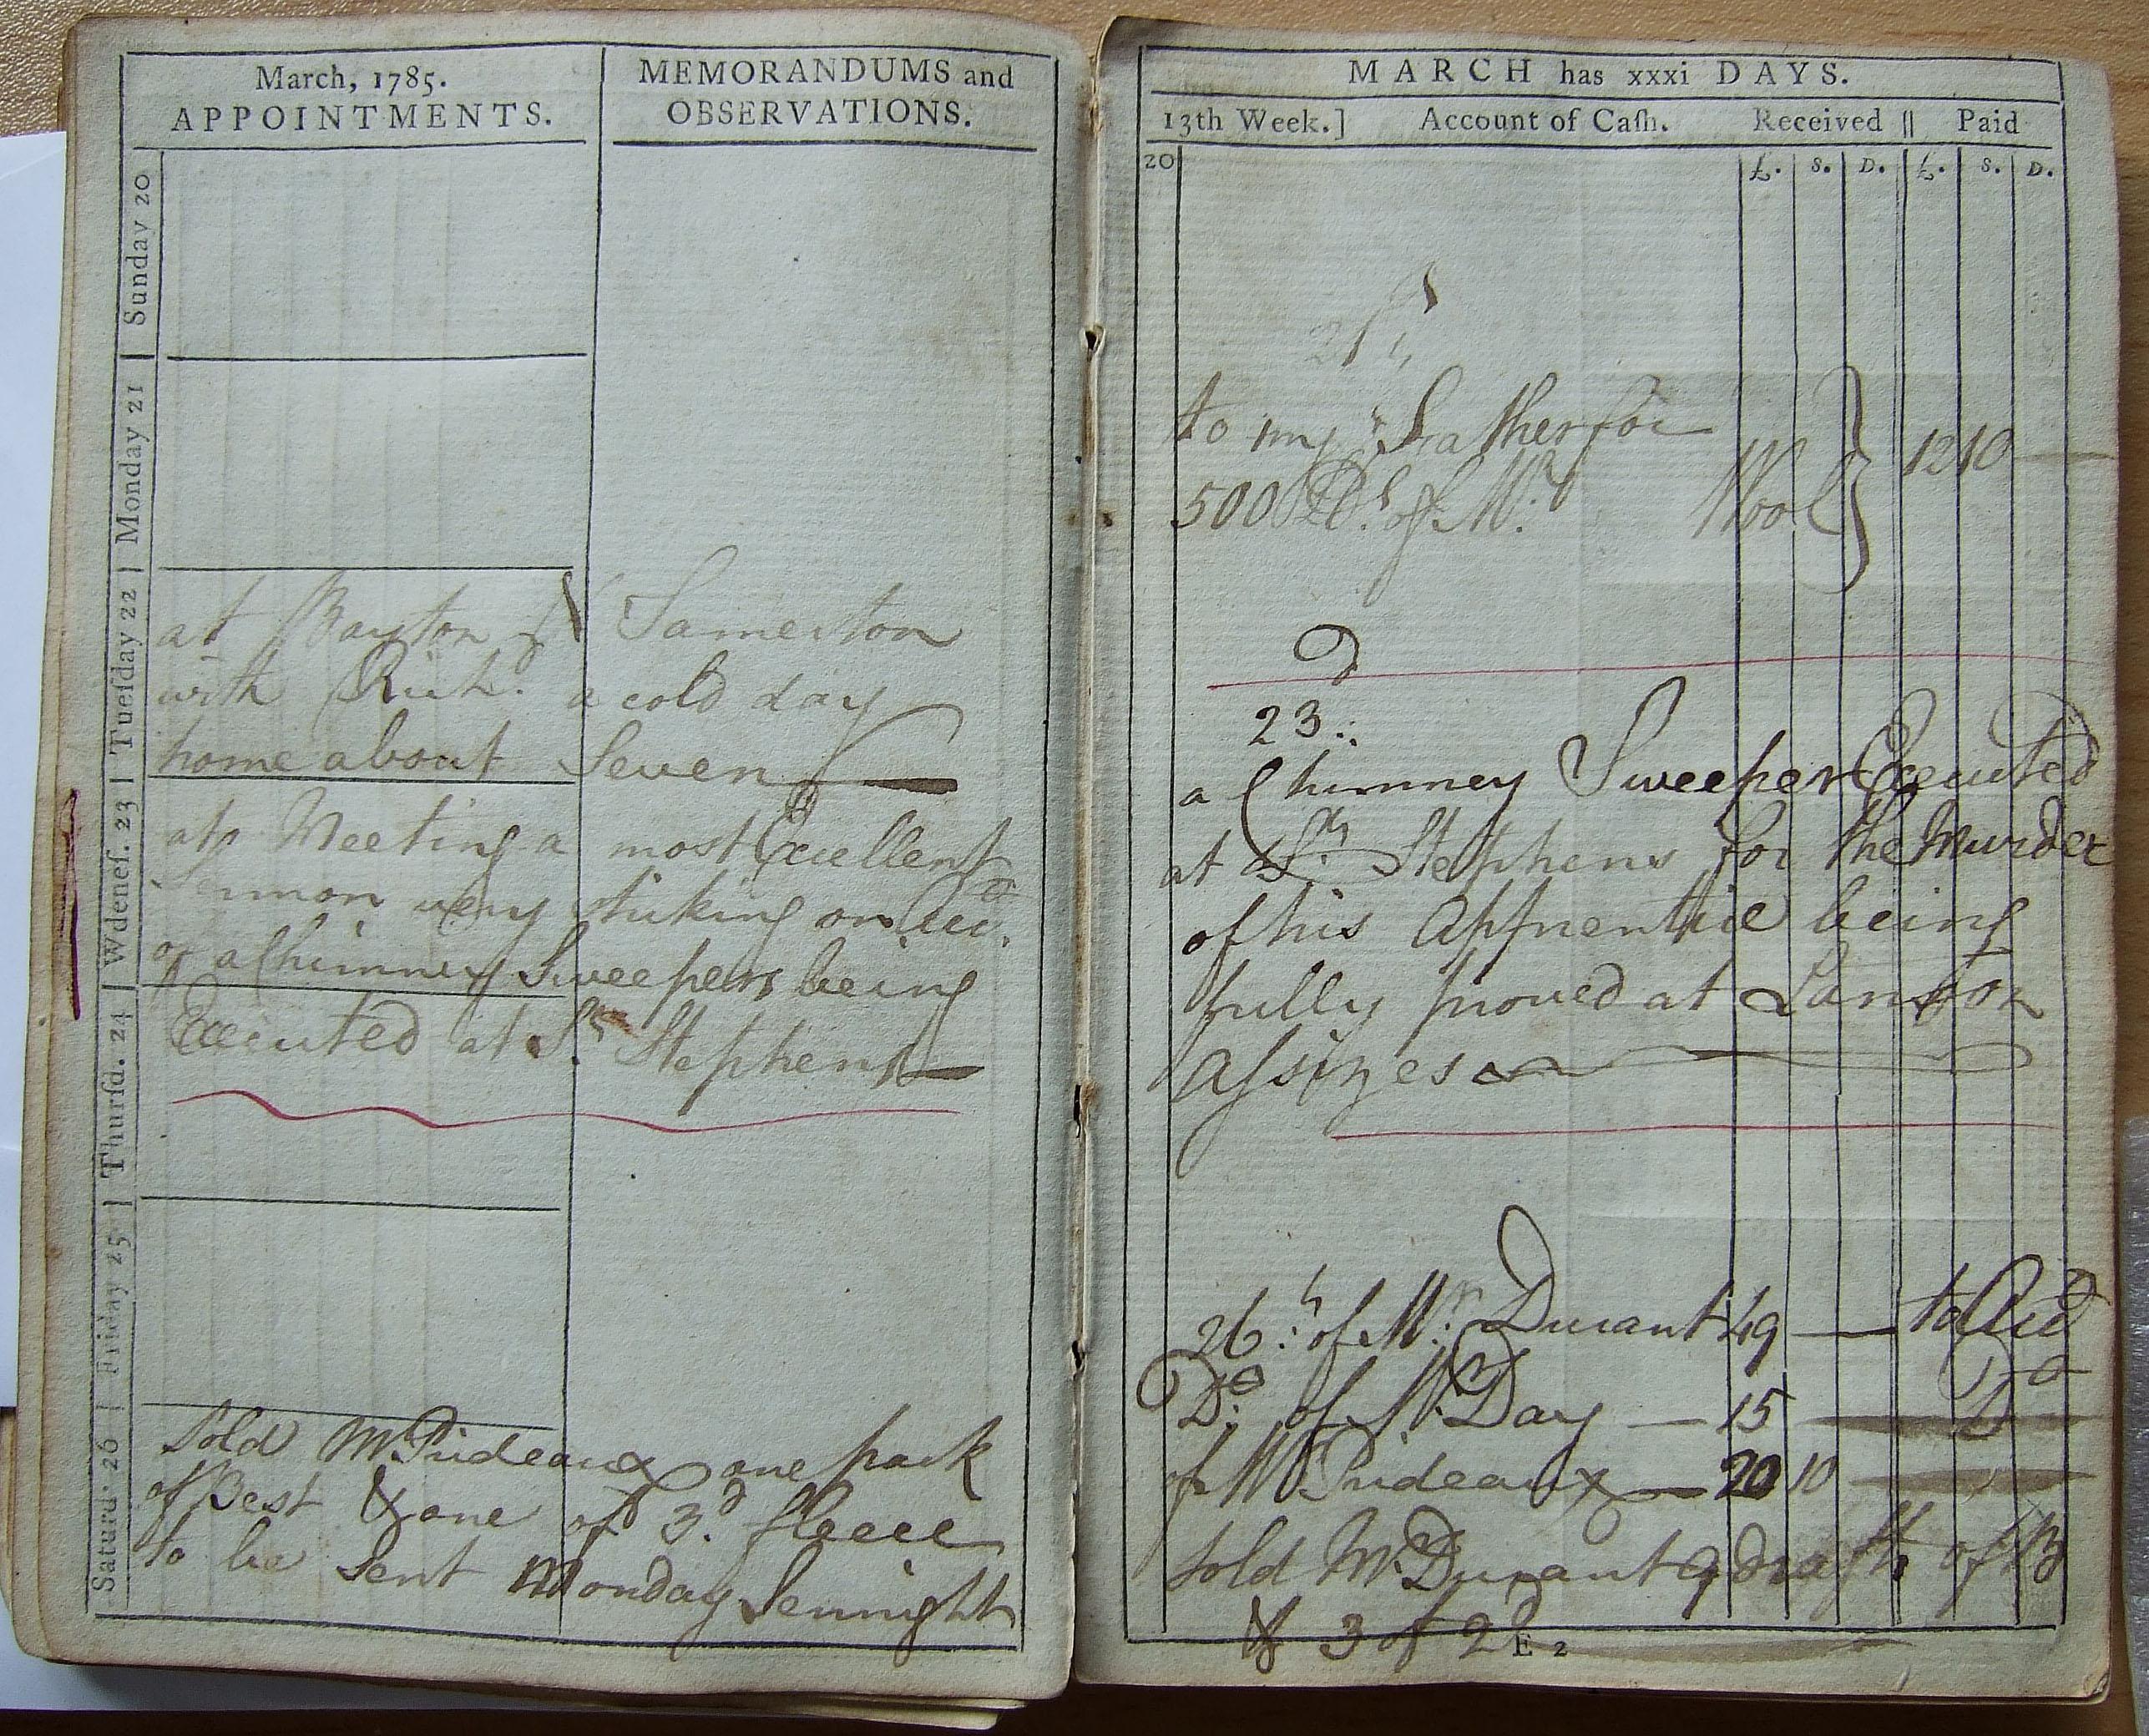 March, 1785.
APPOINTMENTS.
MEMORANDUMS and
OBSERVATIONS.
Sunday 20
Monday 21
Tueſday 22
at Bayton & Samerton
with Richd. a cold day
home about Seven
Wdeneſ. 23
at Meeting a most Excellent
Sermon very striking on acct.
of a Chimney Sweepers being
Thurſd. 24
Executed at St. Stephens
Friday 25
Saturd. 26
Sold Mr Prideaux one pack
of Best & one of 3d. fleece
to be Sent Monday Sennight
MARCH has xxxi DAYS.
13th Week.] Account of Caſh. Received || Paid
20 £. S. D. £. S. D.
21
to my Father for
500 lbs. of Wool 12 10
23d
a Chimney Sweeper Executed
at St. Stephens for the Murder
of his Apprentice being
fully proved at Lanson
Assizes
26th of Mr. Durant 49 — to Acd
Do. of Mr. Day — 15 — Do
of Mr Prideaux — 20 10
Sold Mr. Durant 9 drafts of B
& 3 of 2d
E 2